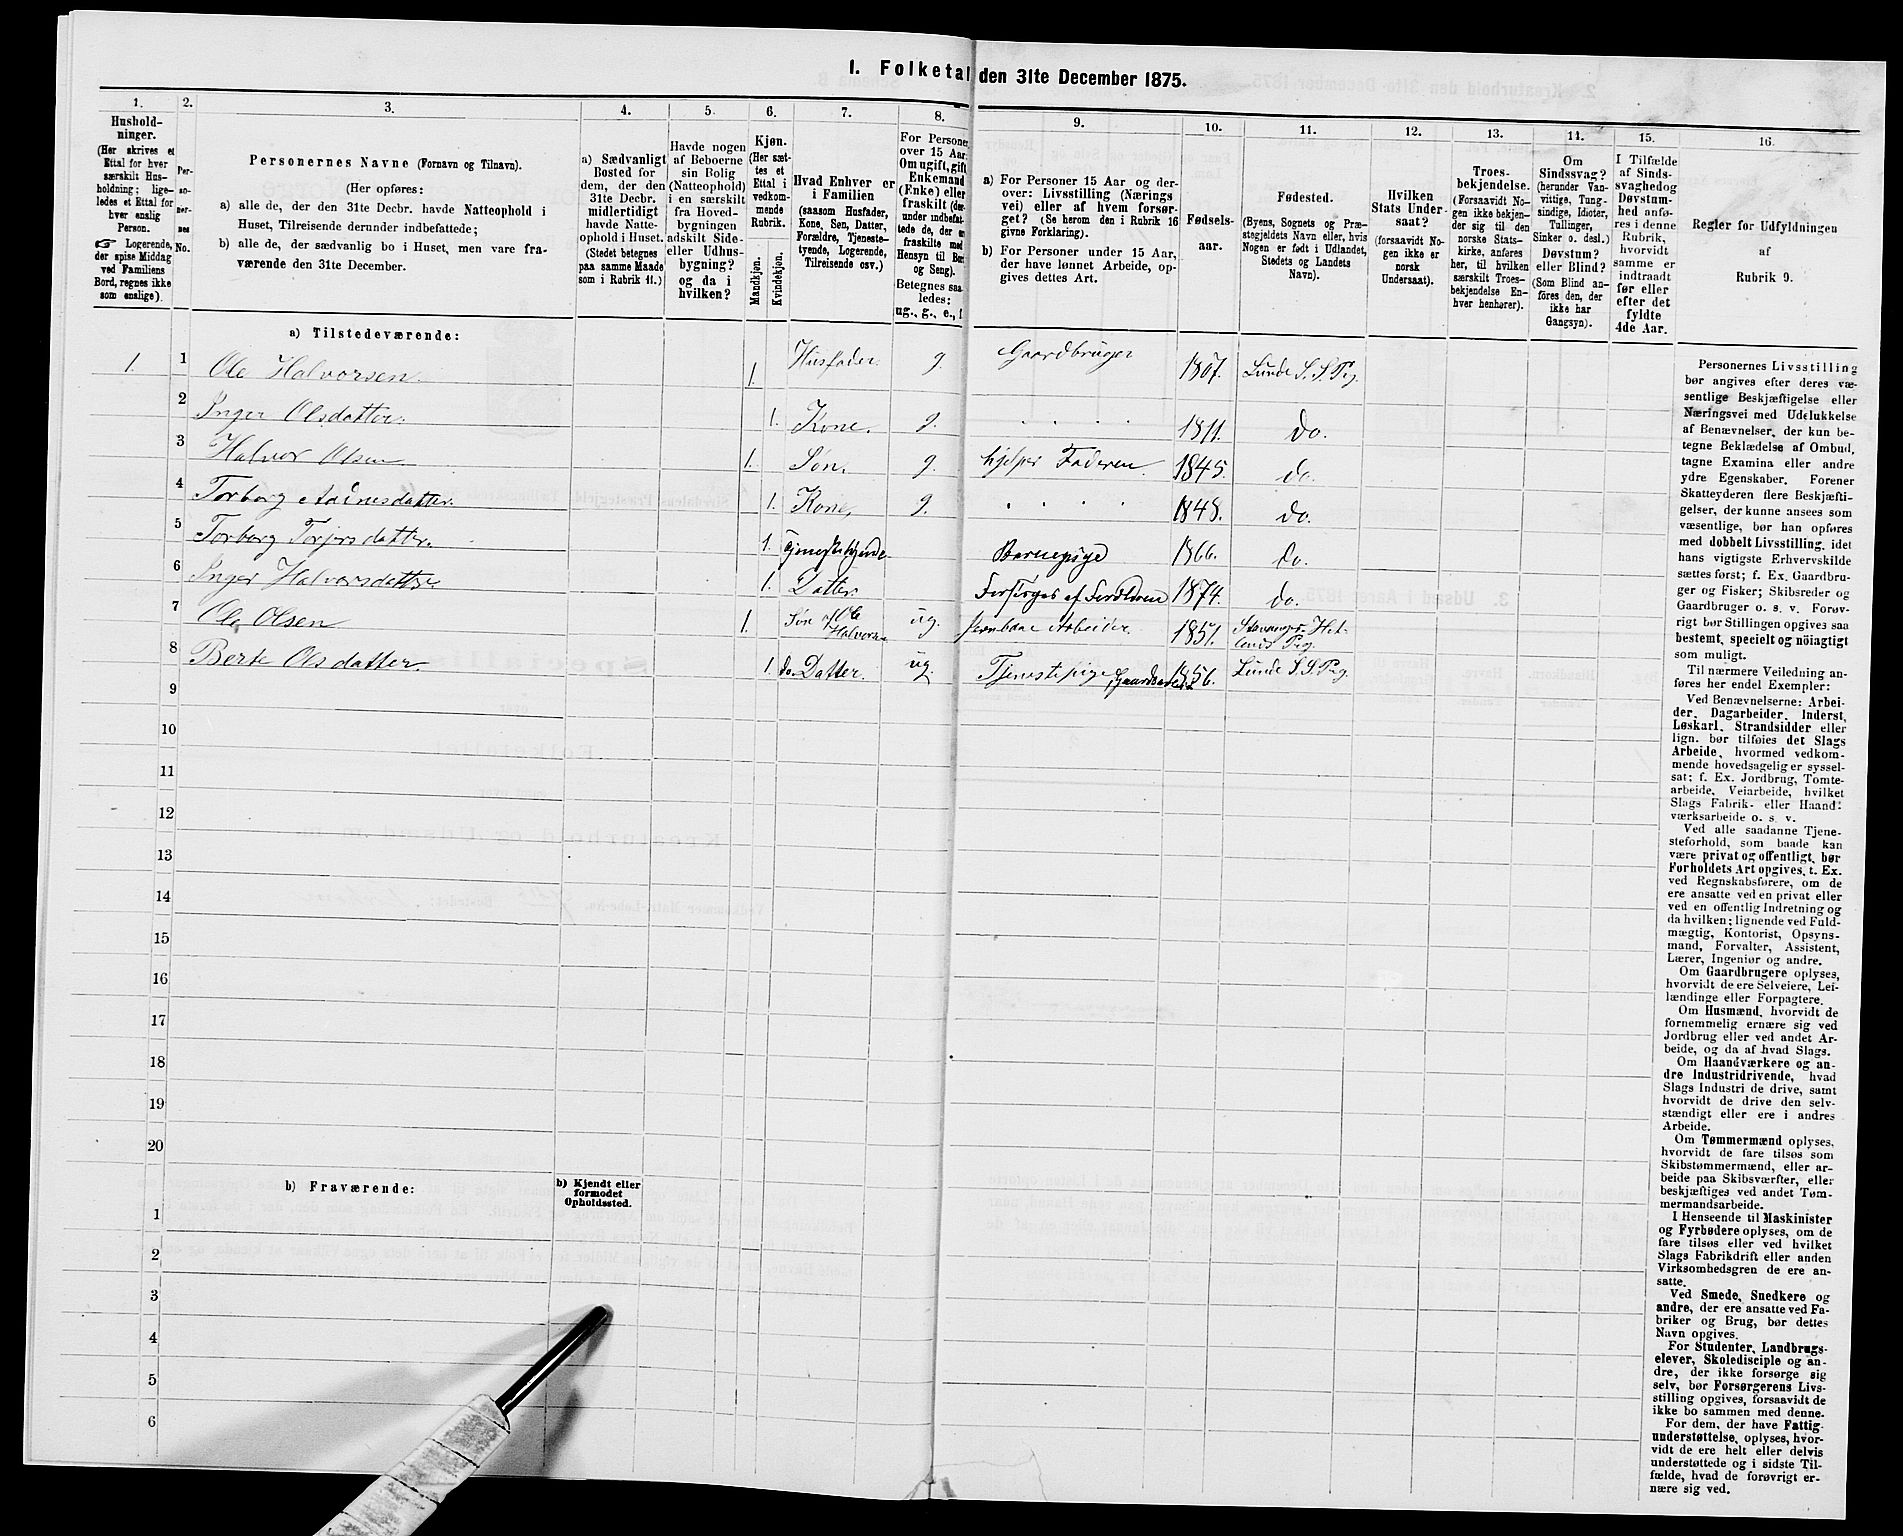 1. Folketal den 31te December 1875.
1.
2.
3.
4.
5.
6.
7.
8.
9.
10.
11.
12.
13.
14.
15.
16.
Hushold-
ninger.
(Her skrives et
Ettal for hver
særskilt Hus-
holdning; lige-
ledes et Ettal for
hver enslig
Person.
☞ Logerende,
der spise Middag
ved Familiens
Bord, regnes ikke
som enslige).
Per-
so-
ner-
nes
No.
Personernes Navne (Fornavn og Tilnavn).
(Her opføres:
a) alle de, der den 31te Decbr. havde Natteophold i
Huset, Tilreisende derunder indbefattede;
b) alle de, der sædvanlig bo i Huset, men vare fra-
værende den 31te December.
a) Sædvanligt
Bosted for
dem, der den
31te Decbr.
midlertidigt
havde Natte-
ophold i Huset.
(Stedet betegnes
paa samme Maade
som i Rubrik 11.)
Havde nogen
af Beboerne
sin Bolig
(Natteophold)
i en særskilt
fra Hoved-
bygningen
adskilt Side-
eller Udhus-
bygning?
og da i
hvilken?
Kjøn.
(Her sæt-
tes et
Ettal i
vedkom-
mende
Rubrik.
Mandkjøn.
Kvindekjøn.
Hvad Enhver er
i Familien
(saasom Husfader,
Kone, Søn, Datter,
Forældre, Tjeneste-
tyende, Logerende,
Tilreisende osv.)
For Personer
over 15 Aar:
Om ugift, gift,
Enkemand
(Enke) eller
fraskilt (der-
under indbefat-
tede de, der er
fraskilte med
Hensyn til Bord
og Seng).
Betegnes saa-
ledes:
ug., g., e., f.
a) For Personer 15 Aar og der-
over: Livsstilling (Nærings
vei) eller af hvem forsør-
get? (Se herom den i Rubrik 16
givne Forklaring).
b) For Personer under 15 Aar,
der have lønnet Arbeide, op-
gives dettes Art.
Fødsels-
aar.
Fødested.
(Byens, Sognets og Præ-
stegjeldets Navn eller, hvis
Nogen er født i Udlandet,
Stedets og Landets
Navn).
Hvilken
Stats Under-
saat?
(forsaavidt No-
gen ikke er
norsk
Undersaat).
Troes-
bekjendelse.
(Forsaavidt No-
gen ikke bekjen-
der sig til den
norske Stats-
kirke, anføres
her, til hvilken
særskilt Troes-
bekjendelse En-
hver henhører).
Om
Sindssvag?
(herunder Van-
vittige, Tung-
sindige, Idioter,
Tullinger,
Sinker o. desl.)
Døvstum?
eller Blind?
(Som Blind an-
føres den, der
ikke har
Gangsyn).
I Tilfælde
af Sinds-
svaghed og
Døvstum-
hed anfø-
res i denne
Rubrik,
hvorvidt
samme er
indtraadt
før eller
efter det
fyldte
4de Aar.
Regler for Udfyldningen
af
Rubrik 9.
a) Tilstedeværende:
1. 1 Ole Halvorsen. 1. Husfader. g. Gaardbruger 1807. Lunde S. S. Pg.
2 Inger Olsdatter. 1. Kone. g. 1811. do.
3 Halvor Olsen 1. Søn. g. hjelper Faderen 1845. do.
4 Torborg Aadnesdatter. 1. Kone, g. 1848. do.
5 Torborg Torjersdatter. 1. Tjenestetyende. Barnepige 1866. do.
6 Inger Halvorsdatter 1. Datter Forsørges af Forældrene 1874. do.
7 Ole Olsen 1. Søn af Ole Halvorsen ug. Jernbane Arbeider. 1851. Stavanger Het-
lands Pg.
8 Berte Olsdatter. 1. do. Datter. ug. Tjenestepige 1856. Lunde S. S. Pg.
9
10
11
12
13
14
15
16
17
18
19
20
b) Fraværende:
b) Kjendt eller
formodet
Opholdssted.
1
2
3
4
5
6
Personernes Livsstilling
bør angives efter deres væ-
sentlige Beskjæftigelse eller
Næringsvei med Udelukkelse
af Benævnelser, der kun be-
tegne Beklædelse af Ombud,
tagne Examina eller andre
ydre Egenskaber. Forener
Skatteyderen flere Beskjæfti-
gelser, der kunne ansees som
væsentlige, bør han opføres
med dobbelt Livsstilling, idet
hans vigtigste Erhvervskilde
sættes først; f. Ex. Gaardbru-
ger og Fisker; Skibsreder og
Gaardbruger o. s. v. Forøv-
rigt bør Stillingen opgives saa
bestemt, specielt og nøiagtigt
som muligt.
Til nærmere Veiledning an-
føres her endel Exempler:
Ved Benævnelserne: Arbei-
der, Dagarbeider, Inderst,
Løskarl, Strandsidder eller
lign. bør tilføies det Slags
Arbeide, hvormed vedkom-
mende hovedsagelig er syssel-
sat; f. Ex. Jordbrug, Tomte-
arbeide, Veiarbeide, hvilket
Slags Fabrik- eller Haand-
værksarbeide o. s. v.
Ved alle saadanne Tjene-
steforhold, som baade kan
være privat og offentligt, bør
Forholdets Art opgives, t. Ex.
ved Regnskabsførere, om de
ere ansatte ved en privat eller
ved en offentlig Indretning og
da hvilken; lignende ved Fuld-
mægtig, Kontorist, Opsyns-
mand, Forvalter, Assistent,
Lærer, Ingeniør og andre.
Om Gaardbrugere oplyses,
hvorvidt de ere Selveiere, Lei-
lændinge eller Forpagtere.
Om Husmænd, hvorvidt de
fornemmelig ernære sig ved
Jordbrug eller ved andet Ar-
beide, og da af hvad Slags.
Om Haandværkere og an-
dre Industridrivende, hvad
Slags Industri de drive, samt
hvorvidt de drive den selv-
stændigt eller ere i andres
Arbeide.
Om Tømmermænd oplyses,
hvorvidt de fare tilsøs som
Skibstømmermænd, eller ar-
beide paa Skibsværfter, eller
beskjæftiges ved andet Tøm-
mermandsarbeide.
I Henseende til Maskinister
og Fyrbødere oplyses, om de
fare tilsøs eller ved hvilket
Slags Fabrikdrift eller anden
Virksomhedsgren de ere an-
satte.
Ved Smede, Snedkere og
andre, der ere ansatte ved Fa-
briker og Brug, bør dettes
Navn opgives.
For Studenter, Landbrugs-
elever, Skoledisciple og an-
dre, der ikke forsørge sig
selv, bør Forsørgerens Livs-
stilling opgives, forsaavidt de
ikke bo sammen med denne.
For dem, der have Fattig-
understøttelse, oplyses, hvor-
vidt de ere helt eller delvis
understøttede og i sidste Til-
fælde, hvad de forøvrigt er-
nære sig ved.